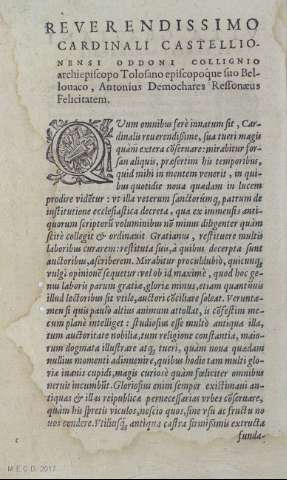 REVERENDISSIMO
CARDINALI CASTELLIO-
NENSI ODDONI COLLIGNIO
archiepiscopo Tolosano episcopoque suo Bel-
louaco, Antonius Demochares Ressonæus
Felicitatem.
QVum omnibus ferè innatum sit, Car-
dinalis reuerendissime, sua tueri magis
quàm extera cōseruare: mirabitur for-
san aliquis, præsertim his temporibus,
quid mihi in mentem venerit, in qui-
bus quotidie noua quædam in lucem
prodire vidētur: vt illa veterum sanctorumq, patrum de
institutione ecclesiastica decreta, quæ ex immensis anti-
quorum scriptorū voluminibus nō minus diligenter quàm
scitè collegit & ordinauit Gratianus, restituere multis
laboribus curarem: restituta suis, à quibus decerpta sunt
auctoribus, ascriberem. Mirabitur proculdubiò, quicunq,
vulgi opinionē sequetur: vel ob id maximè, quòd hoc ge-
nus laboris parum gratiæ, gloriæ minus, etiam quantūuis
illud lectoribus sit vtile, auctori cōciliare soleat. Verunta-
men si quis paulo altius animum attollat, is cōfestim me-
cum planè intelliget: studiosius esse multò antiqua illa,
tum auctoritate nobilia, tum religione constantia, maio-
rum dogmata illustrare atq, tueri, quàm noua quædam
nullius momenti adinuenire, quibus hodie tam multi glo-
riæ inanis cupidi, magis curiosè quàm fœliciter omnibus
neruis incumbūt. Gloriosius enim semper existimaui an-
tiquas & illas reipublicæ pernecessarias vrbes cōseruare,
quàm his spretis viculos, nescio quos, sine vsu ac fructu no
uos condere. Vtiliusq, antiqua castra firmissimis extructa
c
funda-
M.E.C.D. 2017